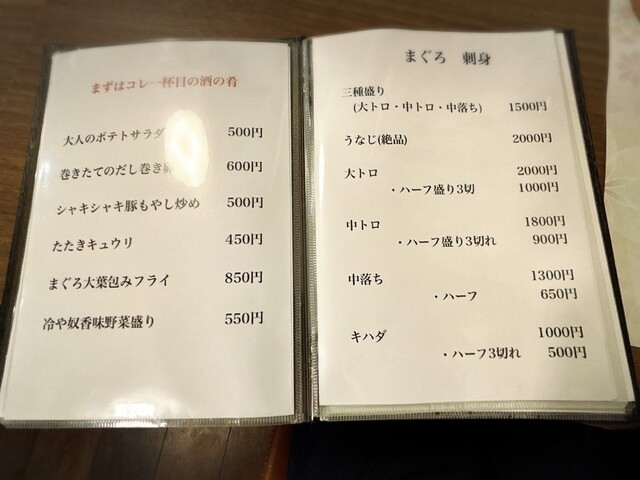 まずはコレ一杯目の酒の肴
大人のポテトサラダ 500円
巻きたてのだし巻き卵 600円
シャキシャキ豚もやし炒め 500円
たたきキュウリ 450円
まぐろ大葉包みフライ 850円
冷や奴香味野菜盛り 550円
まぐろ 刺身
三種盛り
(大トロ・中トロ・中落ち) 1500円
うなじ(絶品) 2000円
大トロ 2000円
・ハーフ盛り3切 1000円
中トロ 1800円
・ハーフ盛り3切れ 900円
中落ち 1300円
・ハーフ 650円
キハダ 1000円
・ハーフ3切れ 500円